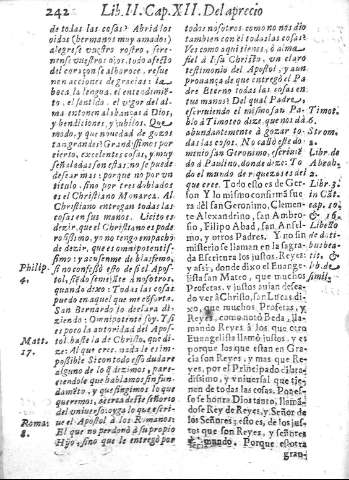 242
Lib. II. Cap. XII. Del aprecio
de todas las cosas? Abrid los
oidos (hermanos muy amados)
alegrese vuestro rostro, serenense
vuestros ojos, todo afecto
del coraçon se alboroce, resuenen
acciones de gracias: la
boca la lengua, el entendimiẽto,
el sentido, el vigor del alma
entonen alabanças a Dios,
y bendiciones, y jubilos. Que
modo, y que novedad de gozos
tan grandes! Grandissimos por
cierto, excelentes cosas, y muy
señaladas son estas; no se puede
desear mas: porque no por vn
titulo, sino por tres doblados
es el Christiano Monarca. Al
Christiano entregan todas las
cosas en sus manos. Licito es
dezir, que el Christiano es poderosissimo,
yo no tengo empacho
de dezir, que es omnipotentissimo:
y acusenme de blasfemo,
si no confessò esto de si el Apostol,
siẽdo semejãte a nosotros,
quando dixo: Todas las cosas
puedo en aquel que me cõforta.
San Bernardo lo declara diziendo:
Omnipotente soy. Y si
es poco la autoridad del Apostol,
baste la de Christo, que dize:
Al que cree, nada le es impossible.
Si en todo esto dudare
alguno de lo q̃ dezimos, pareciendole
que hablamos sin fundamẽto,
y que fingimos lo que
queremos, acerca deste señorio
del vniverso: oyga lo que escrive
el Apostol à los Romanos:
El que no perdonò à su propio
Hijo, sino que le entregò por
Philip.
4.
Matt.
17.
Roma.
8.
todos nosotros como no nos diò
tambien con èl todas las cosas?
Ves como aqui tienes, ò alma
fiel à Iesu Christo, vn claro
testimonio del Apostol, y con
pronança de que entregò el Padre
Eterno todas las cosas en
tus manos? Del qual Padre,
escriviendo el mismo san Pablo
à Timoteo dize, que nos dà
abundantemente à gozar todas
las cosas. No callò este documento
san Geronimo, escriviendo
à Paulino, donde dize: Todo
el mundo de riquezas es del
que cree. Todo esto es de Gerson.
Y lo mismo confirmã fuera
de san Geronimo, Clemente
Alexandrino, san Ambrosio,
Filipo Abad, san Anselmo,
y otros Padres. Y no sin
misterio se llaman en la sagrada
Escritura los justos, Reyes:
y assi, donde dixo el Evangelista
san Mateo, que muchos
Profetas, y justos auian deseado
ver à Christo, san Lucas dixo,
que muchos Profetas, y
Reyes, como notò Beda, llamando
Reyes à los que otro
Euangelista llamò justos, y es
porque los que estan en Gracia
son Reyes, y mas que Reyes,
por el Principado clarissimo,
y vniversal que tienen
de todas las cosas. Por esso
se honra Dios tanto, llamãdose
Rey de Reyes, y Señor de
los Señores; esto es, de los justos
que son Reyes, y señores
mundo. Porque essotra
gran-
Timot.
6.
Strom.
2.
Libr. de
Abrah.
2.
Libr. 3.
in Cãt.
cap. 10.
& 16.
Libello
de distributio.
& lib. de
simili.